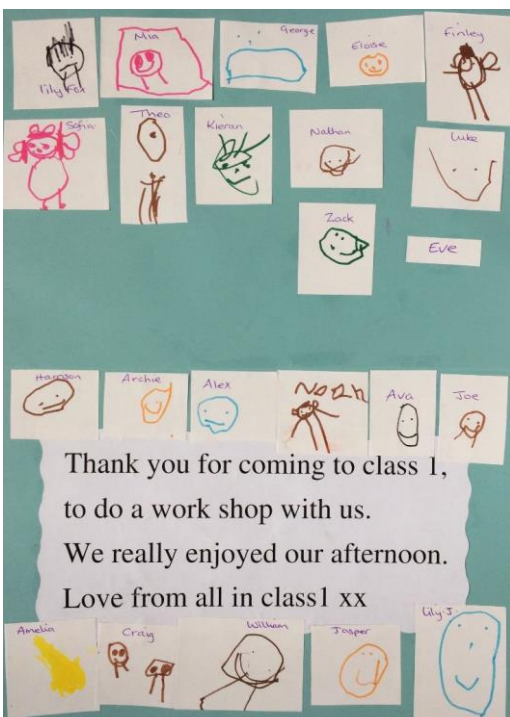 Lily Fox
Mia
George
Eloise
Finley
Sofia
Theo
Kieran
Nathan
Luke
Zack
Eve
Harrison
Archie
Alex
Noah
Ava
Joe
Thank you for coming to class 1,
to do a work shop with us.
We really enjoyed our afternoon.
Love from all in class1 xx
Amelia
Craig
William
Jasper
Lily J.